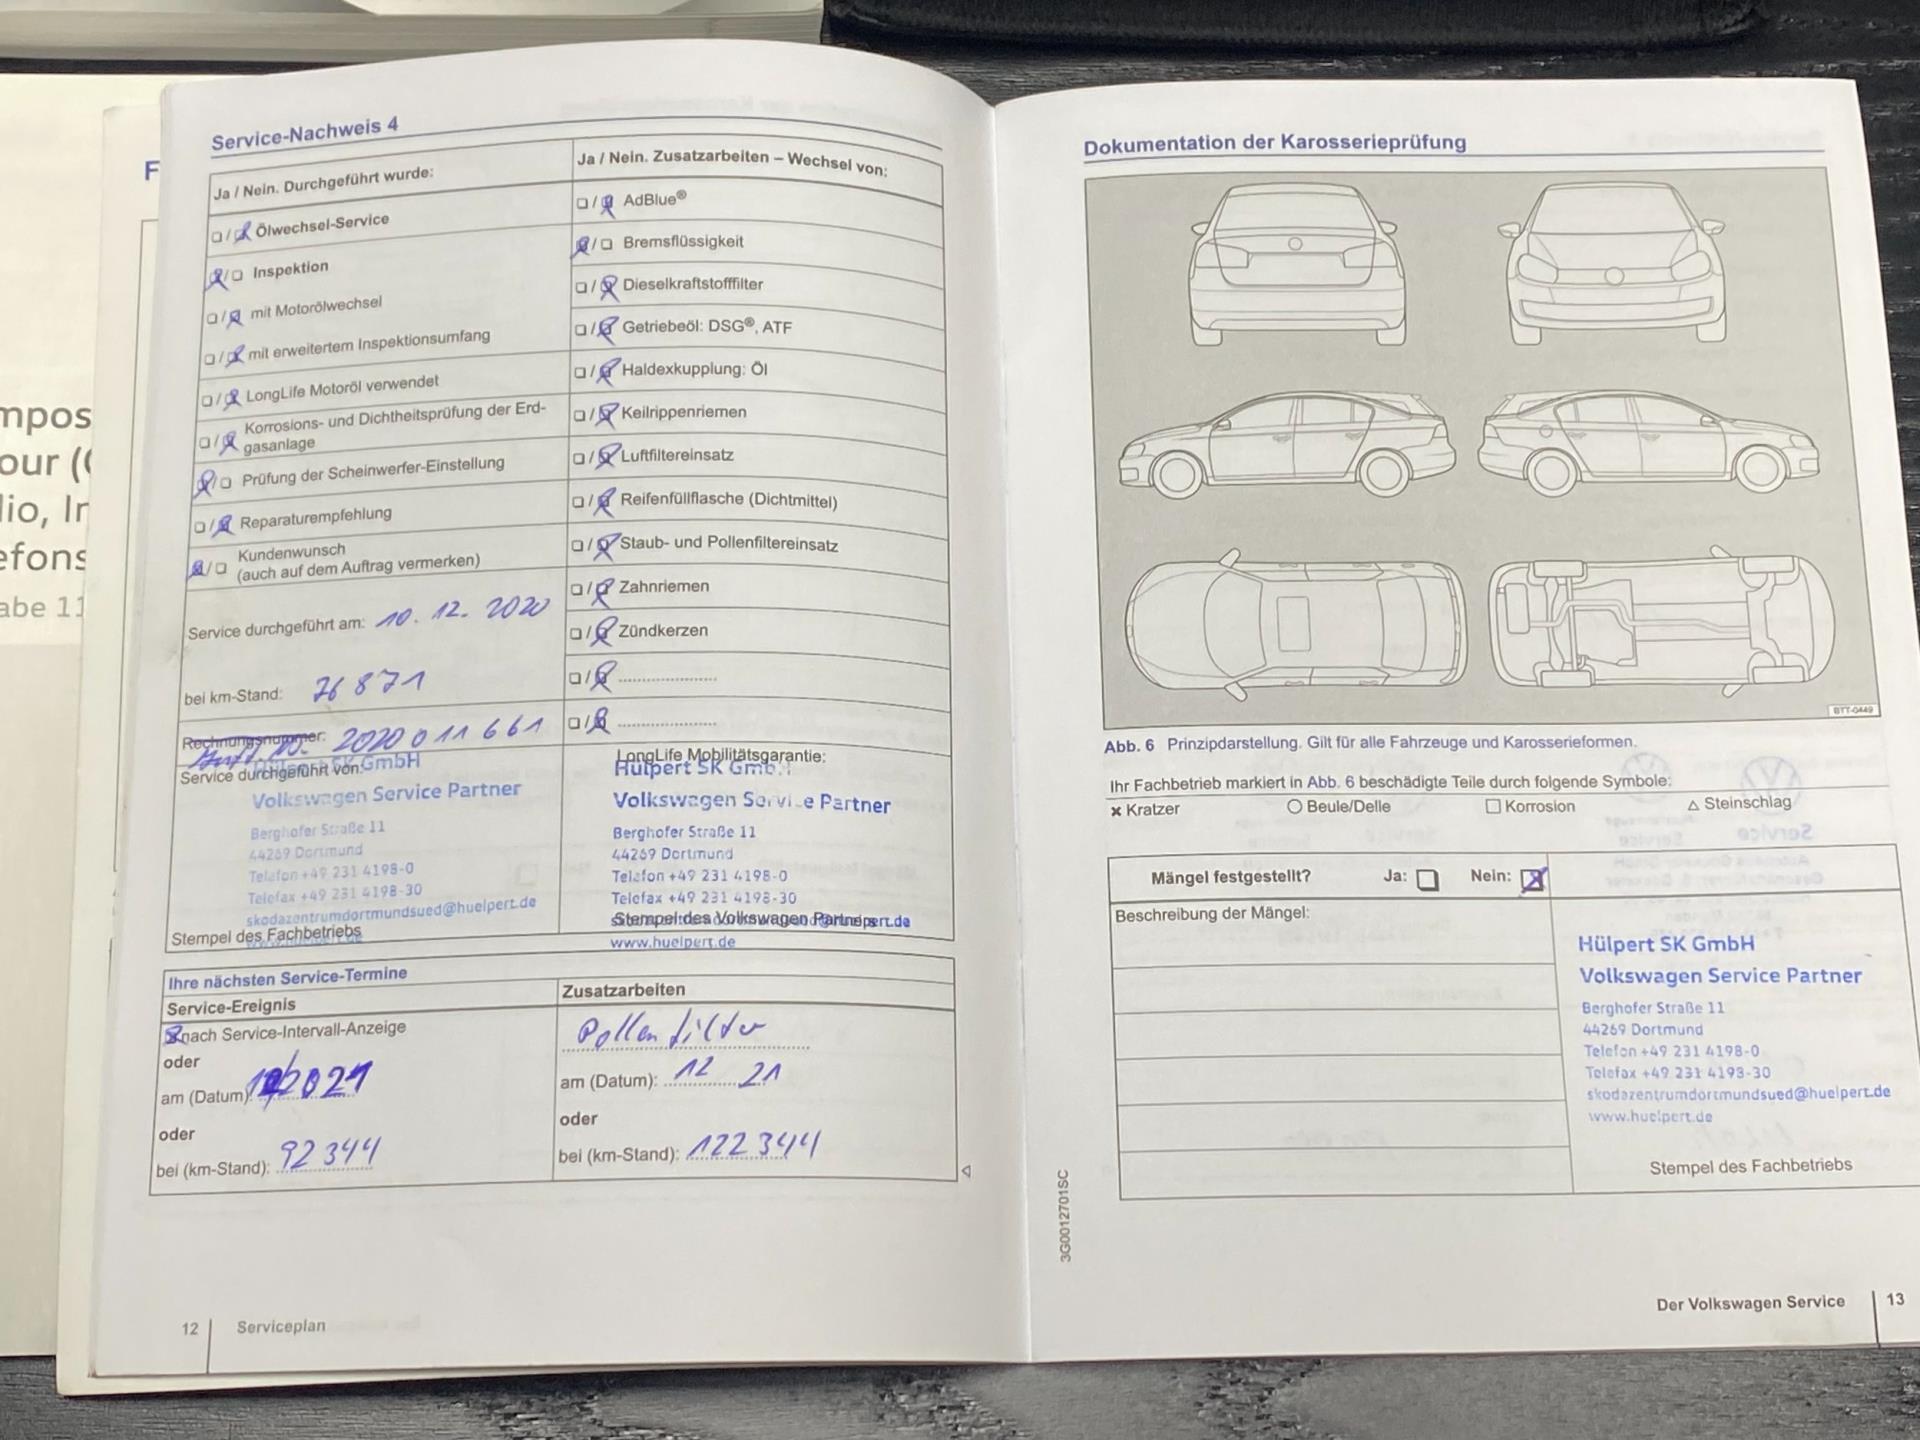 F
mpos
our (
lio, Ir
efons
abe 11
Service-Nachweis 4
Ja / Nein. Durchgeführt wurde:
Ölwechsel-Service
Inspektion
mit Motorölwechsel
mit erweitertem Inspektionsumfang
LongLife Motoröl verwendet
Korrosions- und Dichtheitsprüfung der Erd-
gasanlage
Prüfung der Scheinwerfer-Einstellung
Reparaturempfehlung
Kundenwunsch
(auch auf dem Auftrag vermerken)
Service durchgeführt am: 10. 12. 2020
bei km-Stand: 76 871
Rechnungsnummer: 2020 011 661
Service durchgeführt von:
Hülpert SK GmbH
Volkswagen Service Partner
Berghofer Straße 11
44269 Dortmund
Telefon +49 231 4198-0
Telefax +49 231 4198-30
skodazentrumdortmundsued@huelpert.de
www.huelpert.de
Stempel des Fachbetriebs
Ja / Nein. Zusatzarbeiten – Wechsel von:
AdBlue®
Bremsflüssigkeit
Dieselkraftstofffilter
Getriebeöl: DSG®, ATF
Haldexkupplung: Öl
Keilrippenriemen
Luftfiltereinsatz
Reifenfüllflasche (Dichtmittel)
Staub- und Pollenfiltereinsatz
Zahnriemen
Zündkerzen
LongLife Mobilitätsgarantie:
Hülpert SK GmbH
Volkswagen Service Partner
Berghofer Straße 11
44269 Dortmund
Telefon +49 231 4198-0
Telefax +49 231 4198-30
skodazentrumdortmundsued@huelpert.de
Stempel des Volkswagen Partners
www.huelpert.de
Ihre nächsten Service-Termine
Service-Ereignis
nach Service-Intervall-Anzeige
oder
am (Datum):
oder
bei (km-Stand): 92 344
Zusatzarbeiten
Pollenfilter
am (Datum): 12 21
oder
bei (km-Stand): 122 344
12
Serviceplan
Dokumentation der Karosserieprüfung
BTT-0449
Abb. 6 Prinzipdarstellung. Gilt für alle Fahrzeuge und Karosserieformen.
Ihr Fachbetrieb markiert in Abb. 6 beschädigte Teile durch folgende Symbole:
× Kratzer ○ Beule/Delle □ Korrosion △ Steinschlag
Mängel festgestellt? Ja: Nein:
Beschreibung der Mängel:
Hülpert SK GmbH
Volkswagen Service Partner
Berghofer Straße 11
44269 Dortmund
Telefon +49 231 4198-0
Telefax +49 231 4198-30
skodazentrumdortmundsued@huelpert.de
www.huelpert.de
Stempel des Fachbetriebs
3G0012701SC
Der Volkswagen Service
13